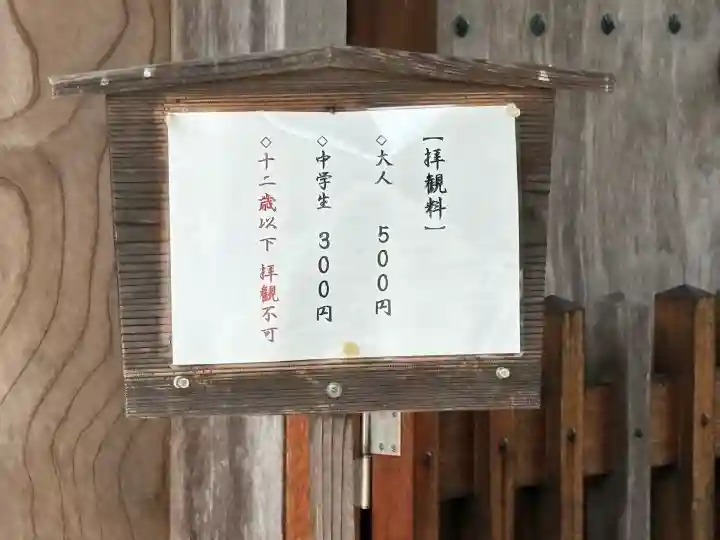 【拝観料】
◇大人 500円
◇中学生 300円
◇十二歳以下 拝観不可